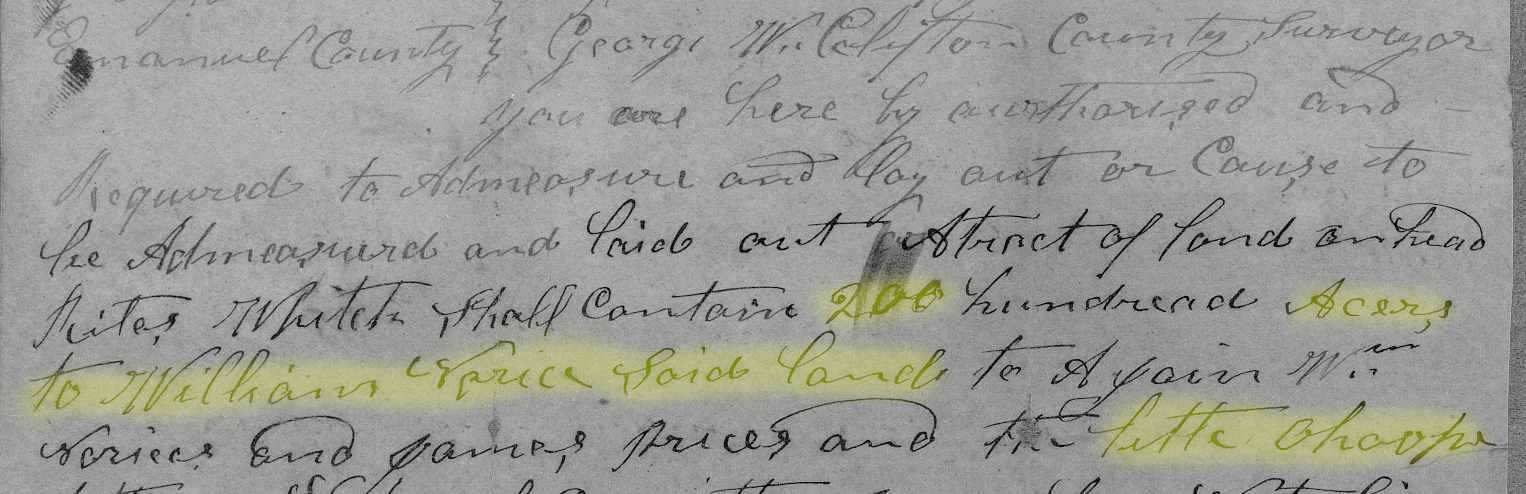 Emanuel County George W. Clifton County Surveyor
you are here by authorised and
Required to Admeasure and lay out or Cause to
be Admeasurd and laid out A tract of land on head
Rites Whitch Shall Contain 200 hundread Acers
to William Price Said land to A Join Wm
Prices and James Prices and the little Ohoope